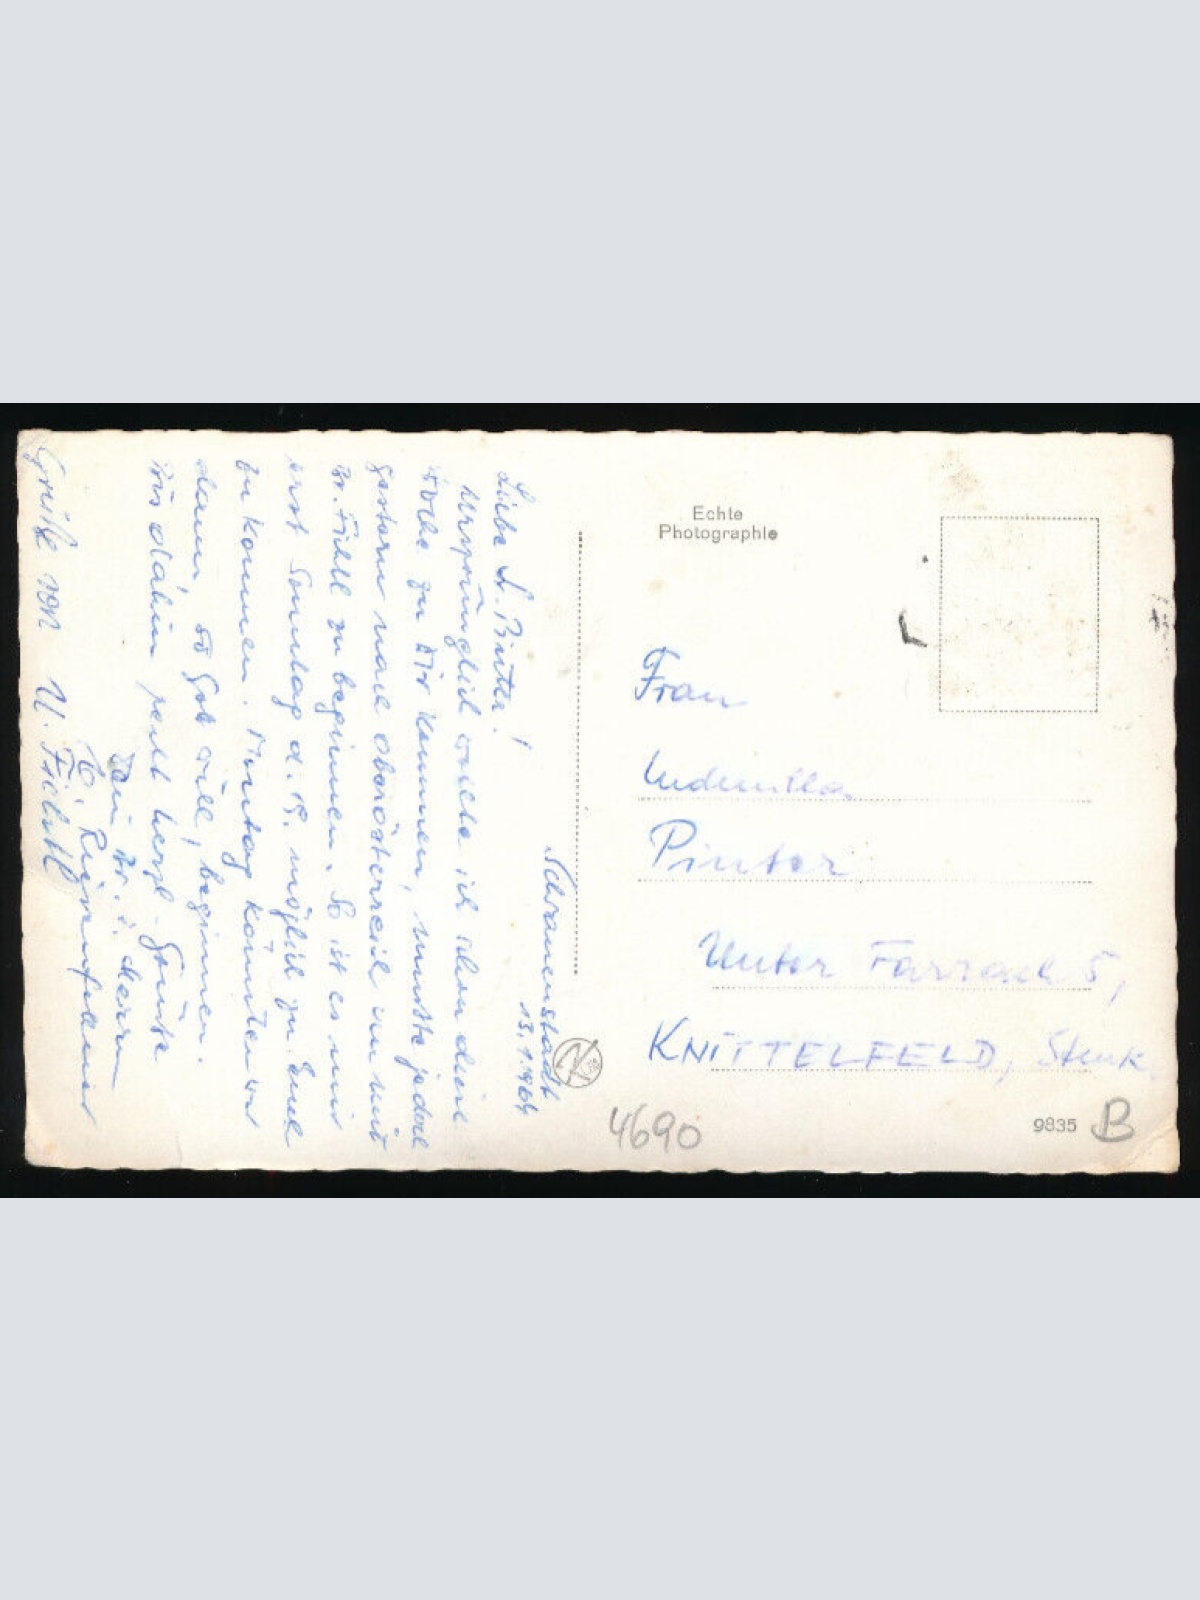 Schwanenstadt
13.1.1964
Liebe S. Pinter!
Ursprünglich wollte ich schon diese
Woche zu Dir kommen, musste jedoch
gestern nach Oberösterreich um mit
Br. zu beginnen. So ist es mir
erst Sonntag d. 19. möglich zu Euch
zu kommen. Montag könnten wir
dann, so Gott will, beginnen.
Bis dahin recht herzl. Grüsse
Dein Br. i. Herrn
Grüße von
Echte
Photographie
Frau
Ludmilla
Pinter
Unter Farrach 5,
KNITTELFELD, Stmk.
4690
9835
B